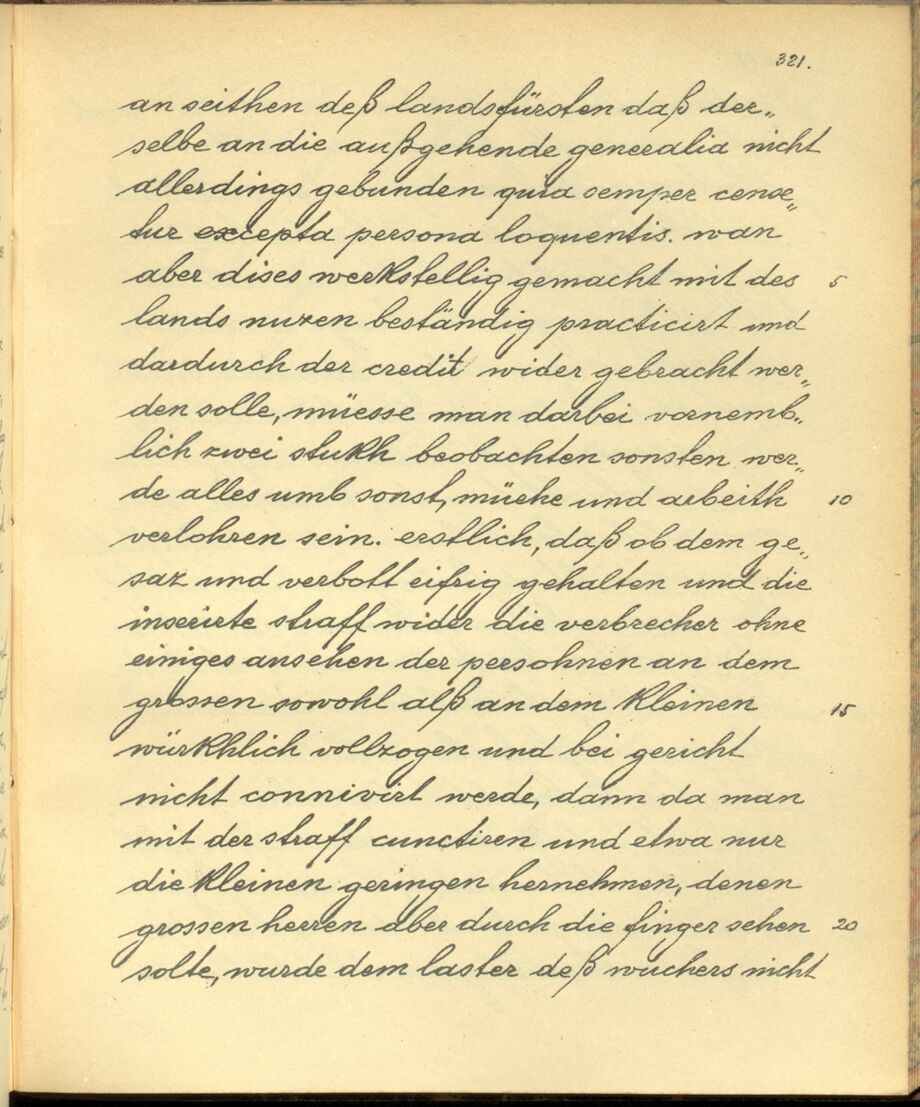 321.
an seithen deß landsfürsten daß der„
selbe an die außgehende generalia nicht
allerdings gebunden quia semper cense„
tur excepta persona loquentis. wan
aber dises werkstellig gemacht mit des 5
lands nuzen beständig practicirt und
dardurch der credit wider gebracht wer„
den solle, müesse man darbei vornemb„
lich zwei stukh beobachten sonsten wer„
de alles umb sonst, müehe und arbeith 10
verlohren sein. erstlich, daß ob dem ge„
saz und verbott eifrig gehalten und die
inserirte straff wider die verbrecher ohne
einiges ansehen der persohnen an dem
grossen sowohl alß an dem kleinen 15
würkhlich vollzogen und bei gericht
nicht connivirt werde, dann da man
mit der straff cunctiren und etwa nur
die kleinen geringen hernehmen, denen
grossen herren aber durch die finger sehen 20
solte, wurde dem laster deß wuchers nicht